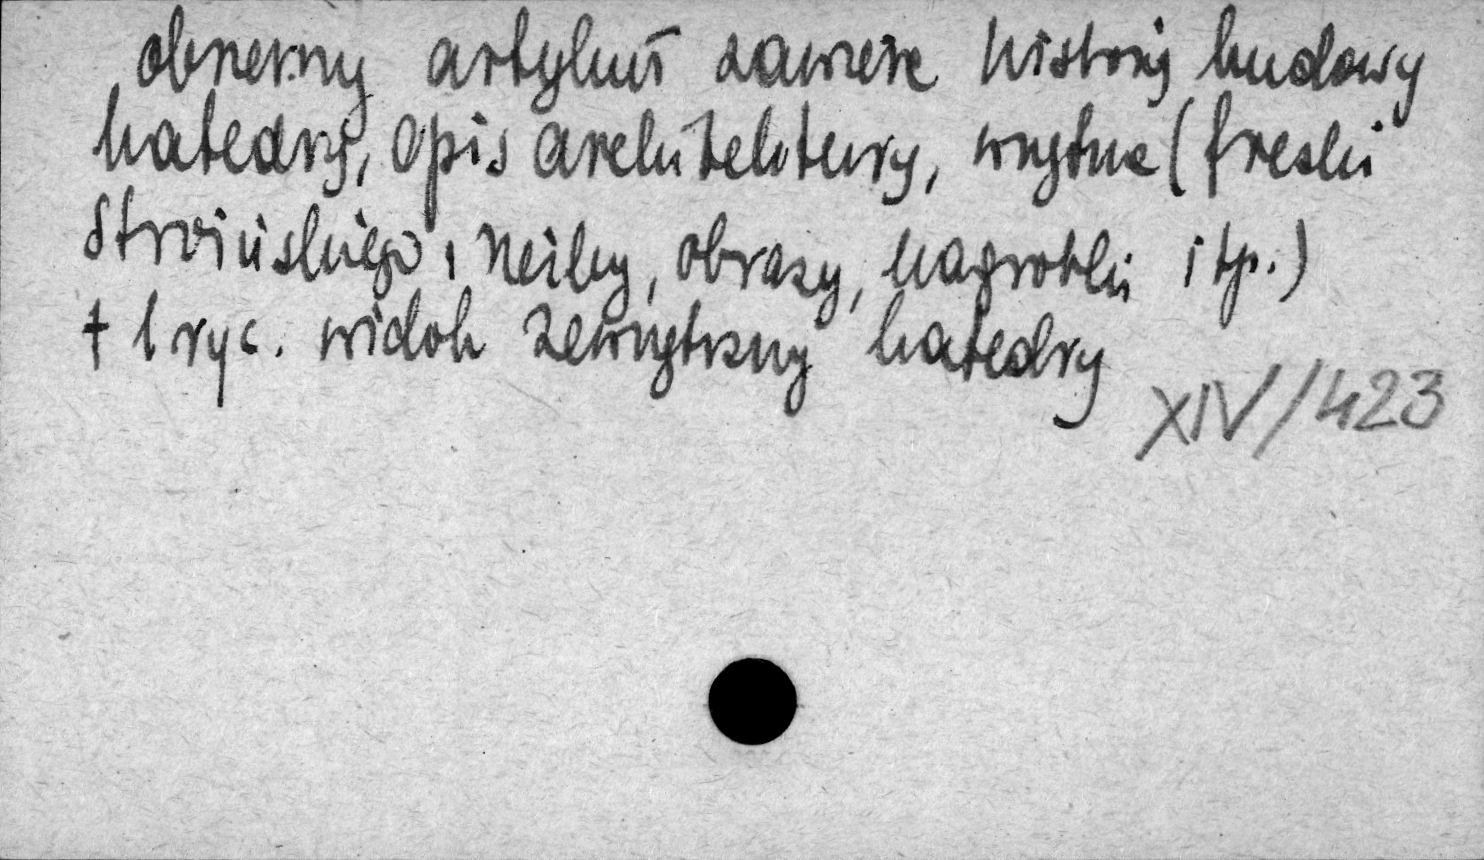 obszerny artykuł zawiera historię budowy
katedry, opis architektury, wnętrze (freski
Stroińskiego, rzeźby, obrazy, nagrobki itp.)
+ 1 ryc. widok zewnętrzny katedry
XIV/423